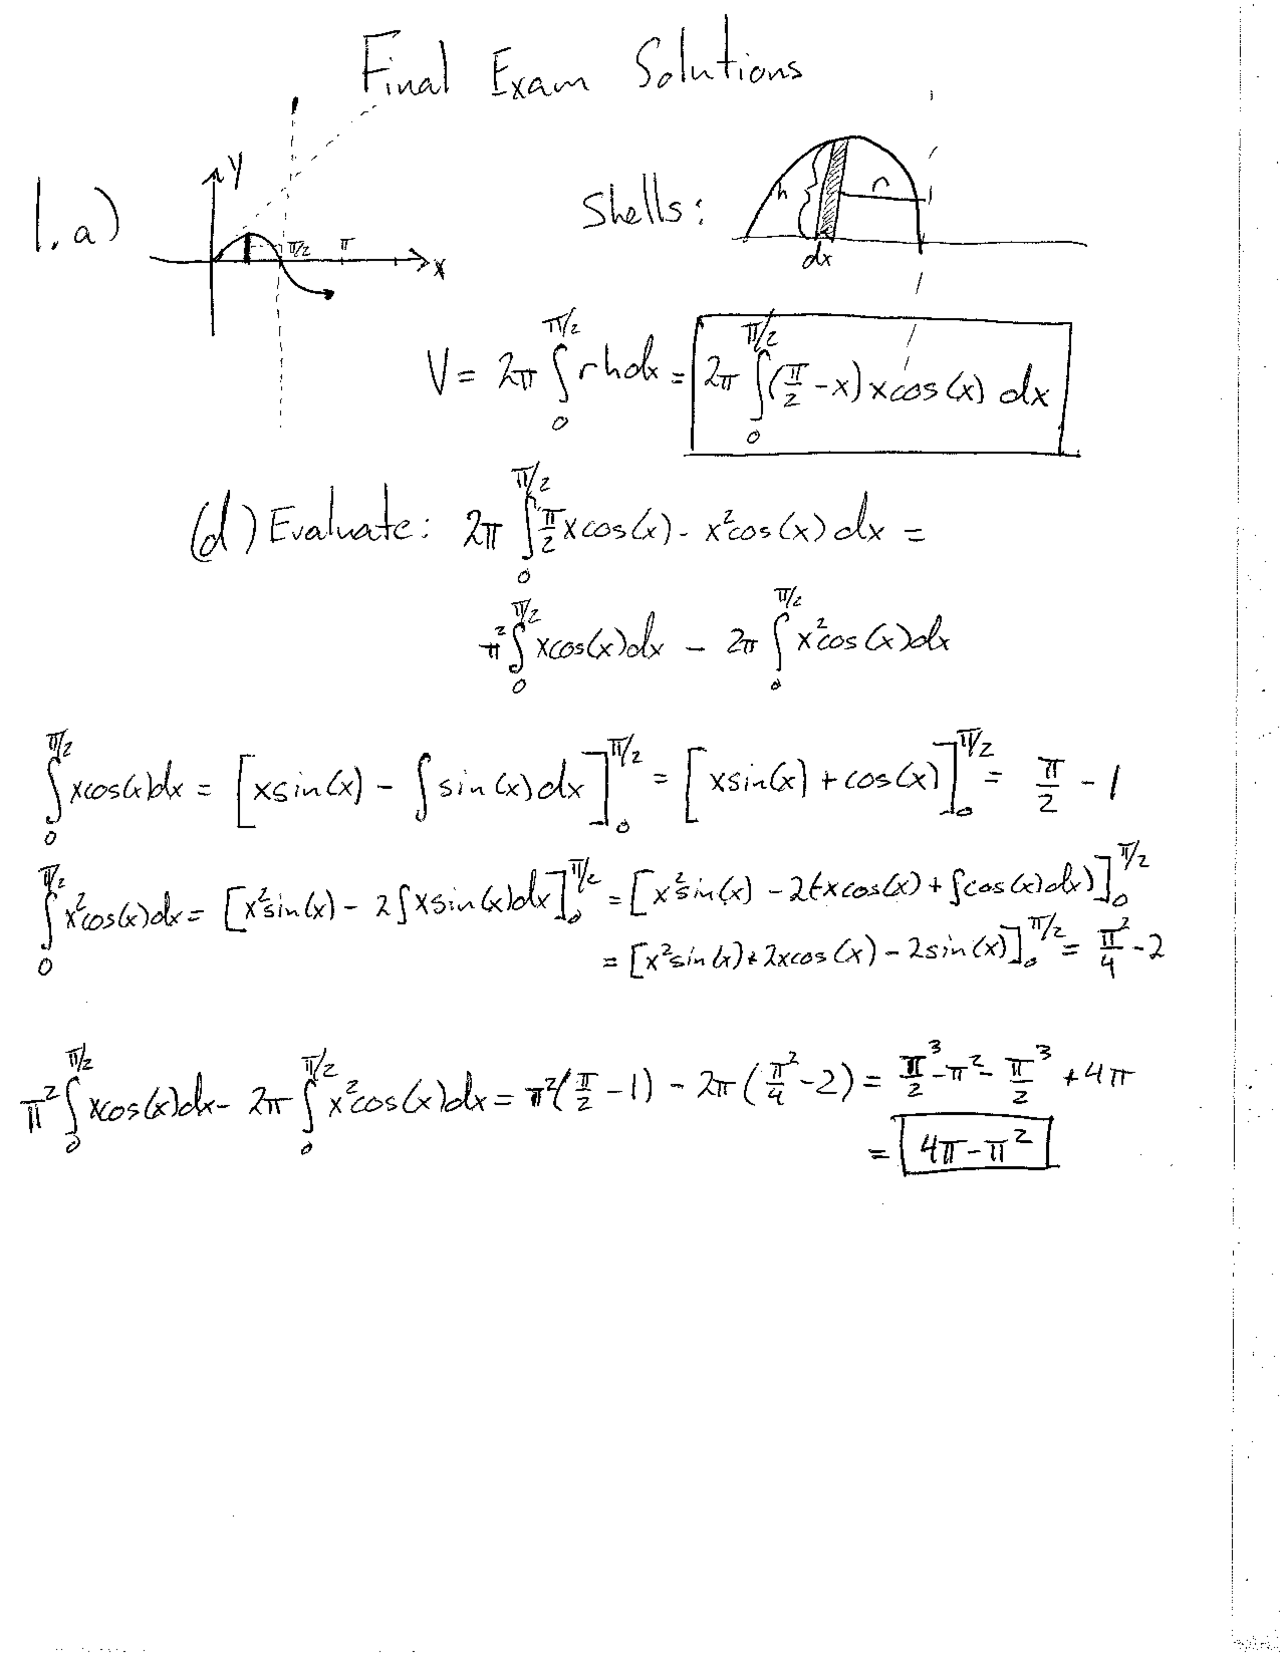 Final Exam Solutions
1. a)
y
π/2
π
x
Shells:
h
r
dx
V = 2π ∫₀^{π/2} r h dx = 2π ∫₀^{π/2} (π/2 - x) x cos(x) dx
(d) Evaluate: 2π ∫₀^{π/2} π/2 x cos(x) - x² cos(x) dx =
π² ∫₀^{π/2} x cos(x) dx - 2π ∫₀^{π/2} x² cos(x) dx
∫₀^{π/2} x cos(x) dx = [x sin(x) - ∫ sin(x) dx]₀^{π/2} = [x sin(x) + cos(x)]₀^{π/2} = π/2 - 1
∫₀^{π/2} x² cos(x) dx = [x² sin(x) - 2 ∫ x sin(x) dx]₀^{π/2} = [x² sin(x) - 2(-x cos(x) + ∫ cos(x) dx)]₀^{π/2}
= [x² sin(x) + 2x cos(x) - 2 sin(x)]₀^{π/2} = π²/4 - 2
π² ∫₀^{π/2} x cos(x) dx - 2π ∫₀^{π/2} x² cos(x) dx = π²(π/2 - 1) - 2π(π²/4 - 2) = π³/2 - π² - π³/2 + 4π
= 4π - π²